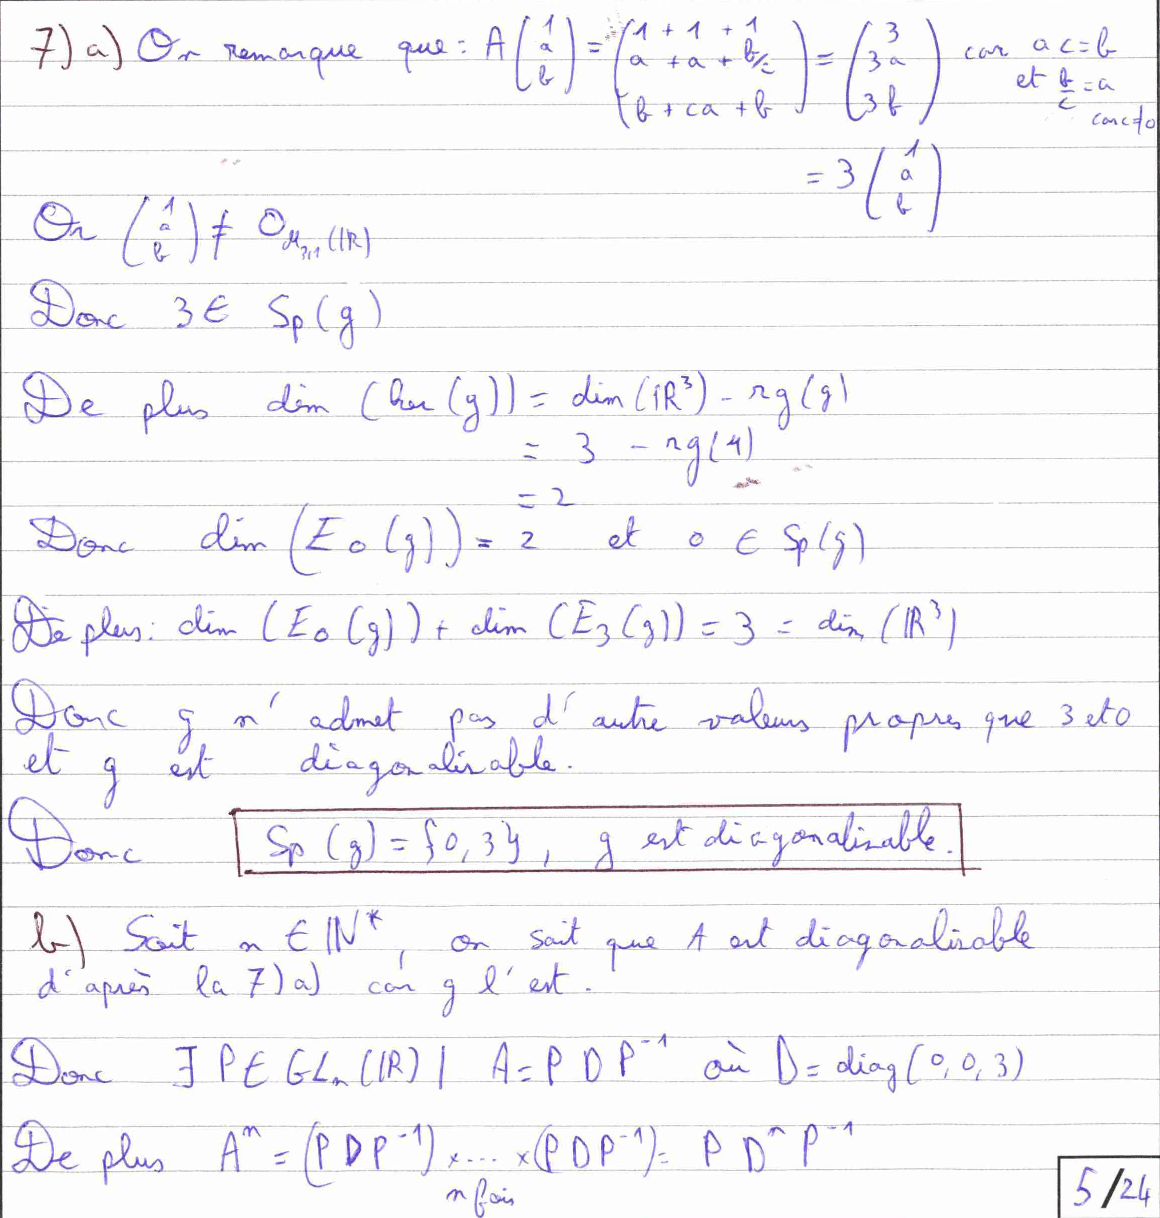 7) a) On remarque que : A (1 a b) = (1 + 1 + 1 a + a + b/c b + ca + b) = (3 3a 3b) car ac = b et b/c = a car c≠0
= 3 (1 a b)
Or (1 a b) ≠ 0_{M_{3,1}(IR)}
Donc 3 ∈ Sp(g)
De plus dim (ker(g)) = dim(IR³) - rg(g)
= 3 - rg(A)
= 2
Donc dim (E_0(g)) = 2 et 0 ∈ Sp(g)
De plus : dim (E_0(g)) + dim (E_3(g)) = 3 = dim (IR³)
Donc g n'admet pas d'autre valeurs propres que 3 et 0
et g est diagonalisable.
Donc Sp(g) = {0,3}, g est diagonalisable.
b) Soit n ∈ IN*, on sait que A est diagonalisable
d'après la 7)a) car g l'est.
Donc ∃ P ∈ GL_n(IR) | A = P D P⁻¹ où D = diag(0,0,3)
De plus Aⁿ = (P D P⁻¹) × .... × (P D P⁻¹) = P Dⁿ P⁻¹
n fois
5/24